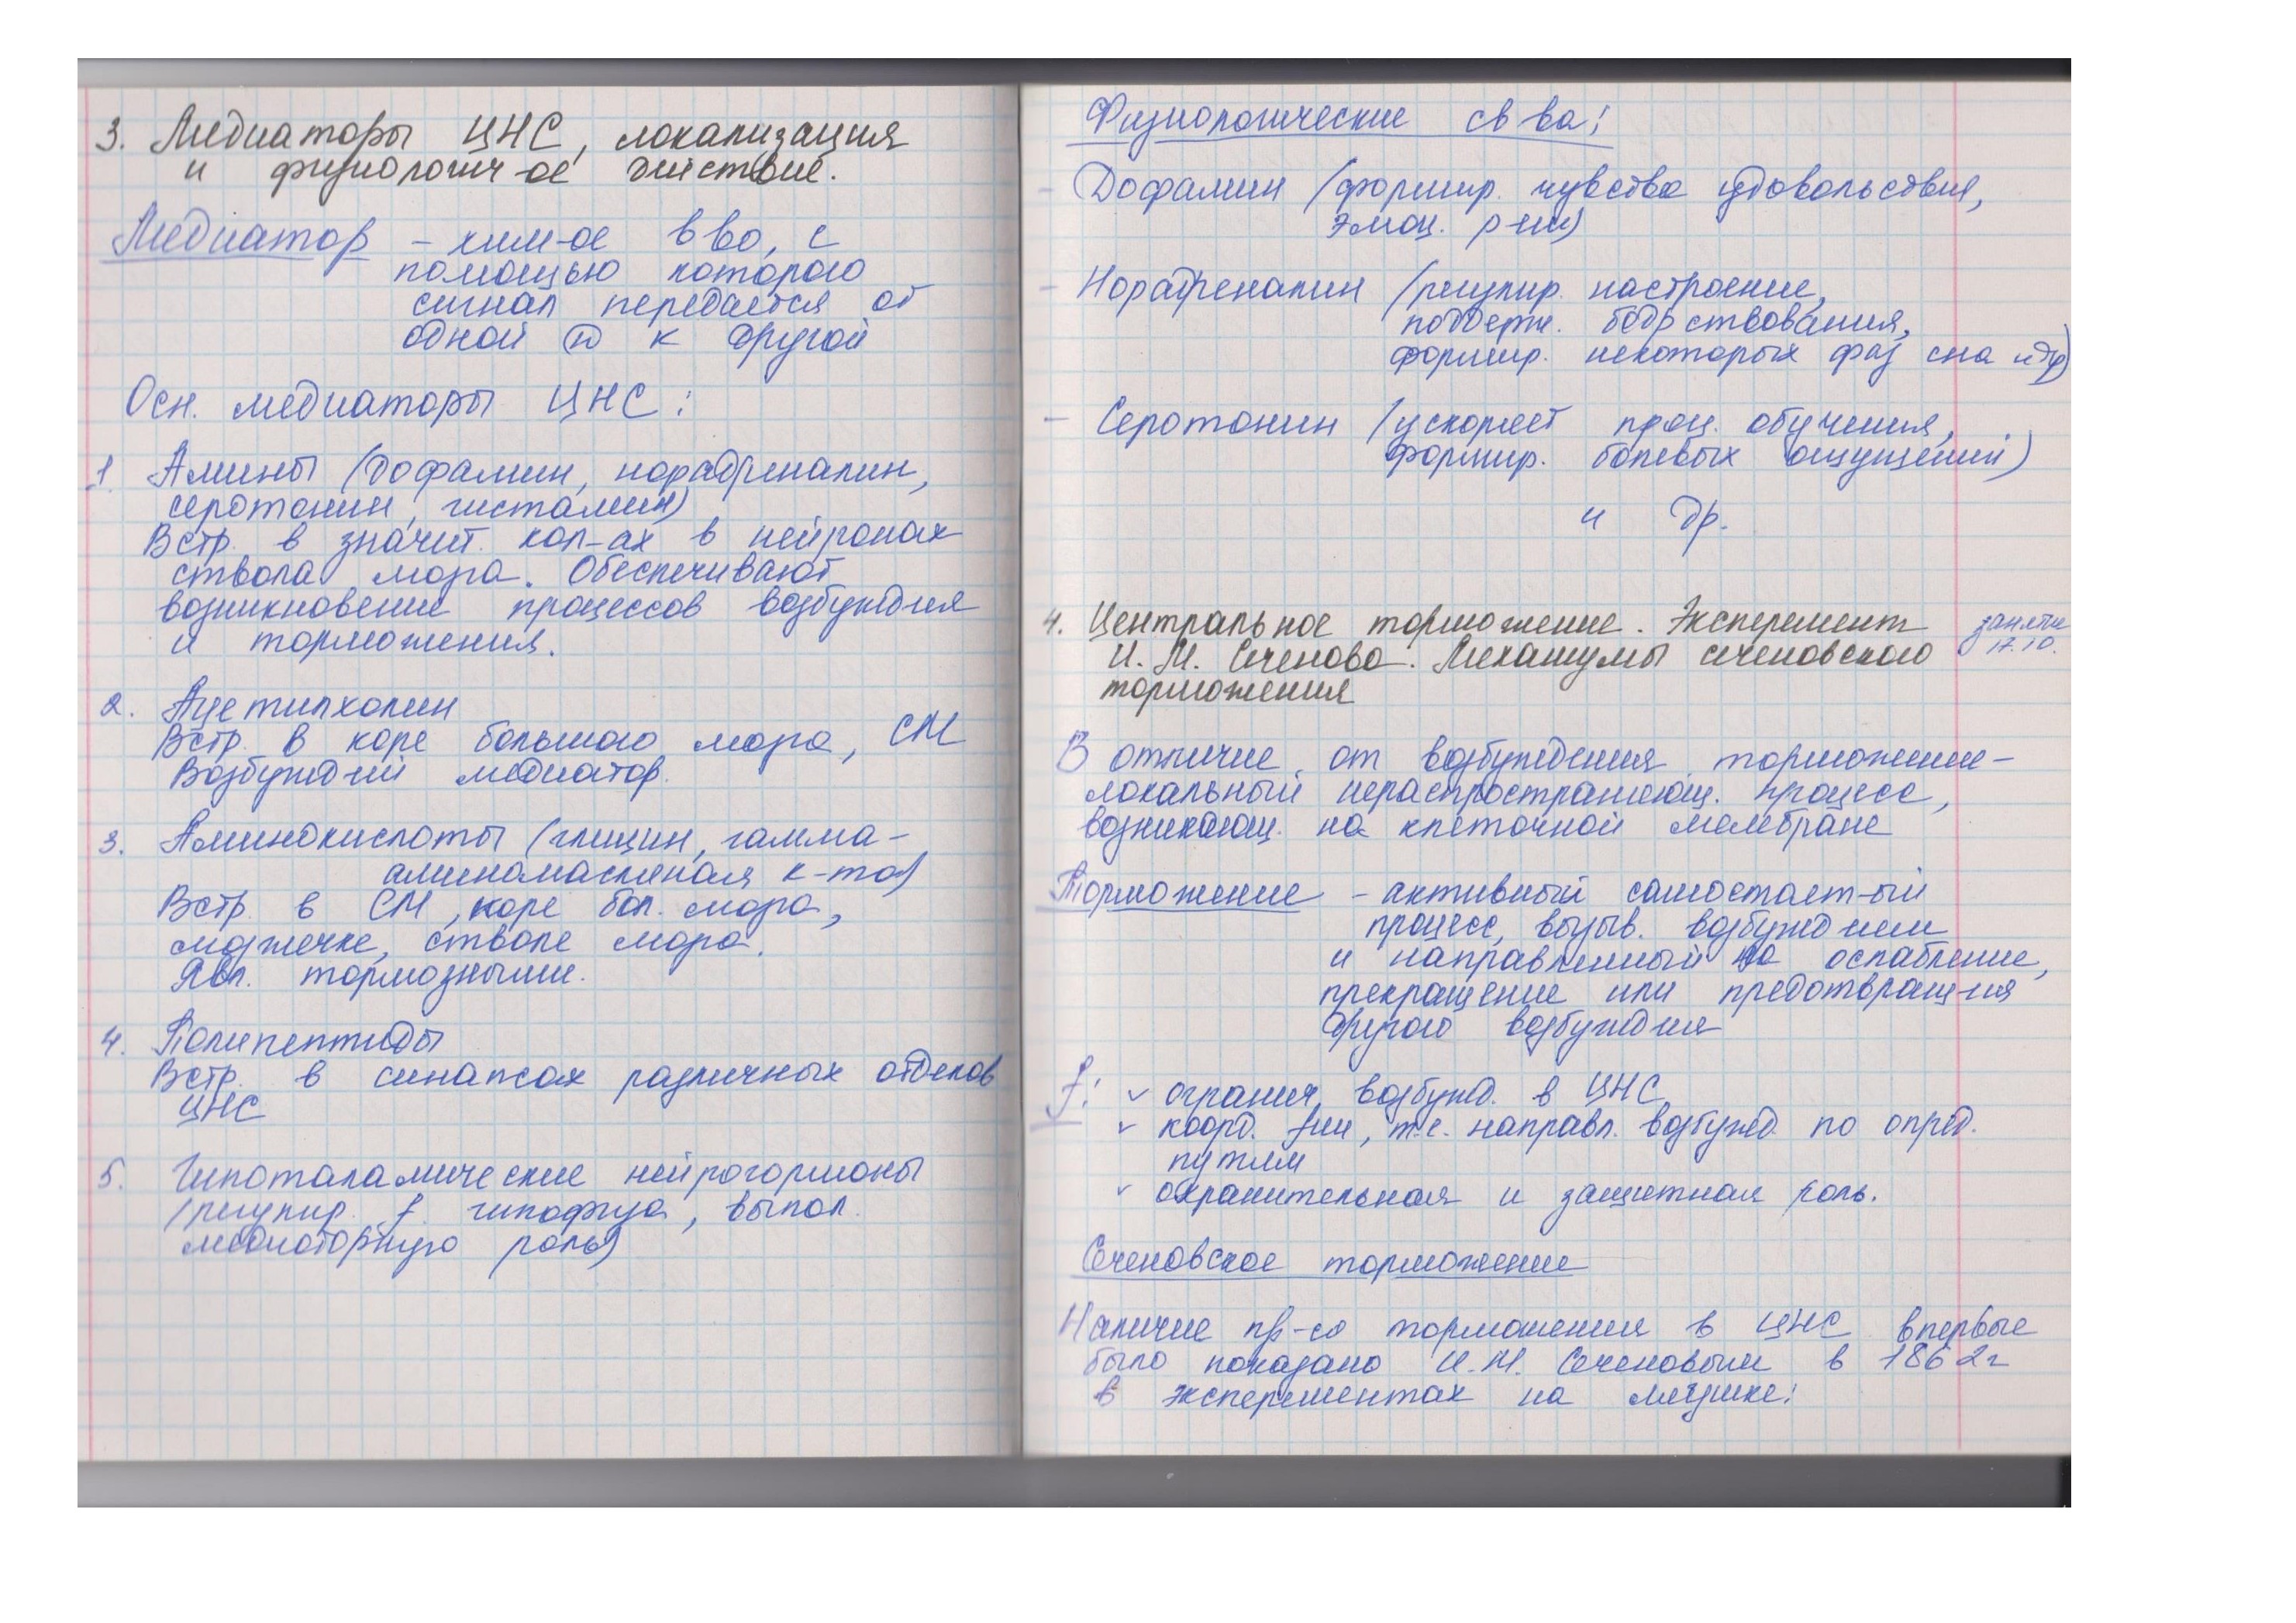 3. Медиаторы ЦНС, локализация
и физиологич-ое действие.
Медиатор – хим-ое в во, с
помощью которого
сигнал передаётся от
одной к другой
Осн. медиаторы ЦНС:
1 Амины (дофамин, норадреналин,
серотонин, гистамин)
Встр. в значит. кол-ах в нейронах
ствола мозга. Обеспечивают
возникновение процессов возбуждния
и торможения.
2. Ацетилхолин
Встр. в коре большого мозга, СМ
Возбуждчий медиатор.
3. Аминокислоты (глицин, гамма-
аминомасляная к-та)
Встр. в СМ, коре бол. мозга,
мозжечке, стволе мозга.
Явл. тормозными.
4. Полипептиды
Встр. в синапсах различных отделов
ЦНС
5. Гипоталамические нейрогормоны
(регулир. f. гипофиза, выпол.
медиаторную роль)
Физиологические св ва:
- Дофамин (формир. чувства удовольствия,
эмоц. р ии)
- Норадреналин (регулир. настроение,
поддерж. бодрствования,
формир. некоторых фаз сна и др)
- Серотонин (ускоряет проц. обучения,
формир. болевых ощущений)
и др.
4. Центральное торможение. Эксперемент
И. М. Сеченова. Механизмы сеченовского
торможения
занятие
17.10.
В отличие от возбуждения торможение –
локальный нераспространяющ. процесс,
возникающ. на клеточной мембране
Торможение – активный самостает-ый
процесс, вызыв. возбуждием
и направленный на ослабление,
прекращение или предотвращ-ия
другого возбуждия
f: ˅ огранич. возбужд. в ЦНС
˅ коорд. fии, т.е. направл. возбужд по опред.
путям
˅ охранительная и защитная роль.
Сеченовское торможение
Наличие пр-са торможения в ЦНС впервые
было показано И.М. Сеченовым в 1862г
в эксперементах на лягушке: